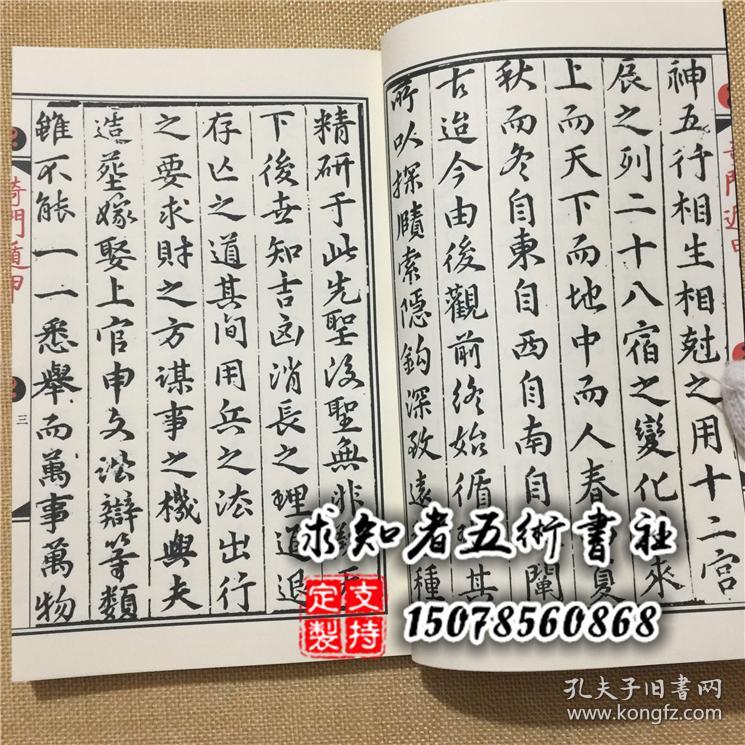 神五行相生相尅之用十二宫
辰之列二十八宿之變化 來
上而天下而地中而人春 夏
秋而冬自東自西自南自 闡
古迨今由後觀前终始循 其
所以探賾索隱鈎深致遠 種
精研于此先聖後聖無非
下後世知吉凶消長之理進退
存亡之道其间用兵之法出行
之要求財之方謀事之機與夫
造塟嫁娶上官申文訟辯等類
雖不能一一悉舉而萬事萬物
竒門遁甲
三
求知者五術書社
支持定製
15078560868
孔夫子旧书网
www.kongfz.com